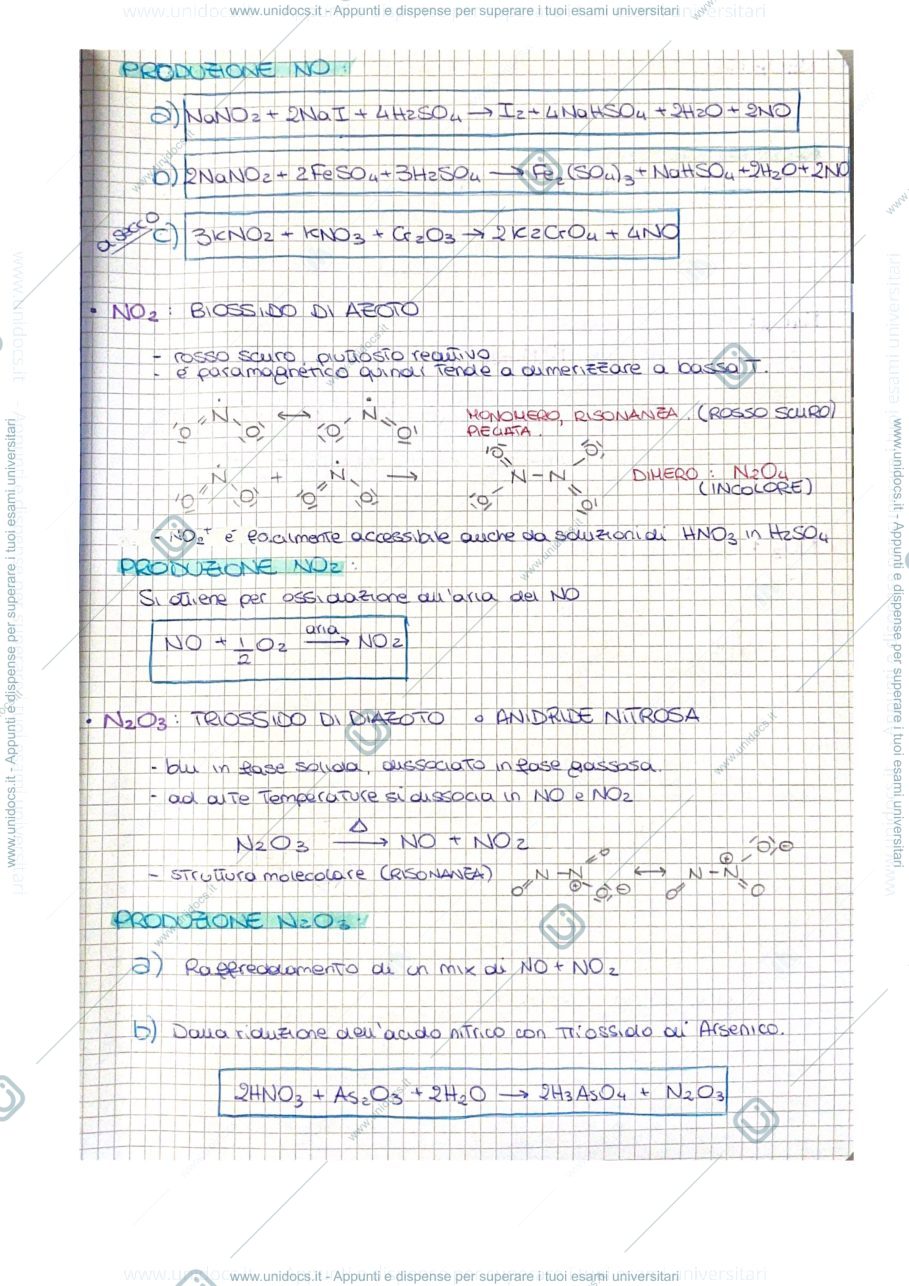 www.unidocs.it - Appunti e dispense per superare i tuoi esami universitari
PRODUZIONE NO:
a) NaNO2 + 2NaI + 4H2SO4 → I2 + 4NaHSO4 + 2H2O + 2NO
b) 2NaNO2 + 2FeSO4 + 3H2SO4 → Fe2(SO4)3 + NaHSO4 + 2H2O + 2NO
a secco c) 3KNO2 + KNO3 + Cr2O3 → 2K2CrO4 + 4NO
• NO2: BIOSSIDO DI AZOTO
- rosso scuro, piuttosto reattivo
- è paramagnetico quindi tende a dimerizzare a bassa T.
MONOMERO, RISONANZA. (ROSSO SCURO)
PIEGATA.
DIMERO: N2O4
(INCOLORE)
- NO2+ è facilmente accessibile anche da soluzioni di HNO3 in H2SO4
PRODUZIONE NO2:
Si ottiene per ossidazione all'aria del NO
NO + 1/2 O2 aria → NO2
• N2O3: TRIOSSIDO DI DIAZOTO o ANIDRIDE NITROSA
- blu in fase solida, dissociato in fase gassosa.
- ad alte temperature si dissocia in NO e NO2
N2O3 Δ → NO + NO2
- struttura molecolare (RISONANZA)
PRODUZIONE N2O3:
a) Raffreddamento di un mix di NO + NO2
b) Dalla riduzione dell'acido nitrico con Triossido di Arsenico.
2HNO3 + As2O3 + 2H2O → 2H3AsO4 + N2O3
www.unidocs.it - Appunti e dispense per superare i tuoi esami universitari